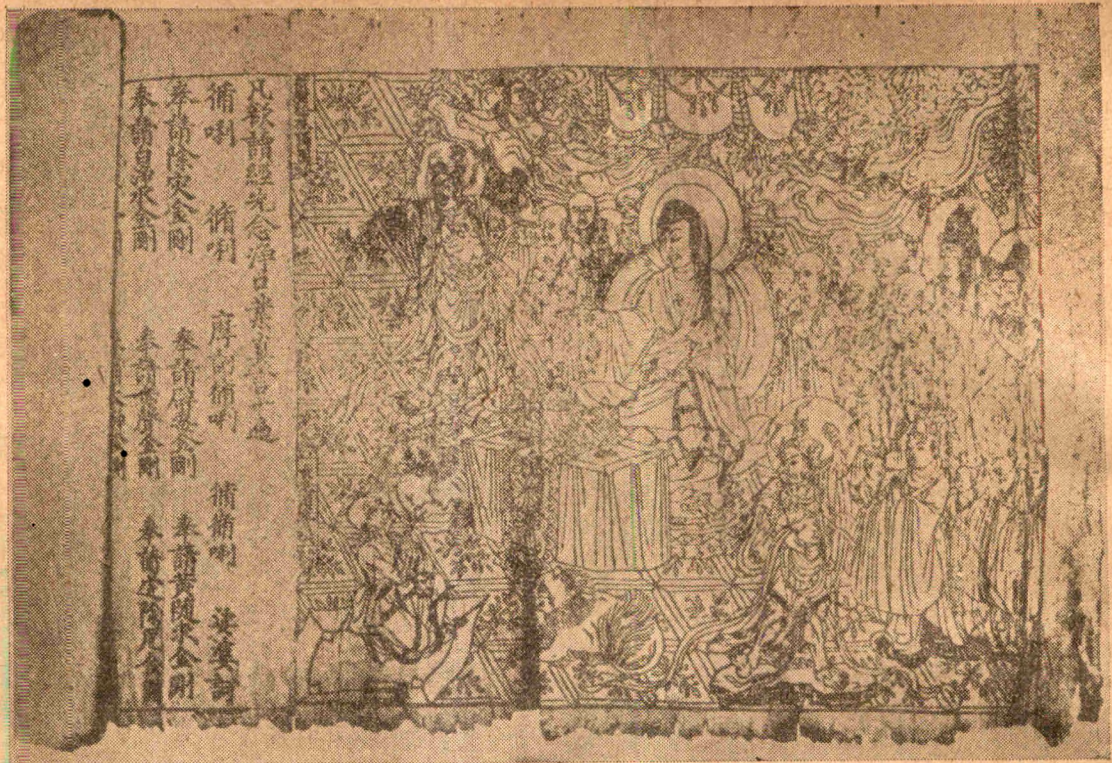 凡欲讀經先念淨口業真言一遍
脩唎 脩唎 摩訶脩唎 脩脩唎 娑婆訶
奉請除災金剛 奉請金剛 奉請黃隨求金剛
奉請白淨水金剛 奉請金剛 奉請定除厄金剛